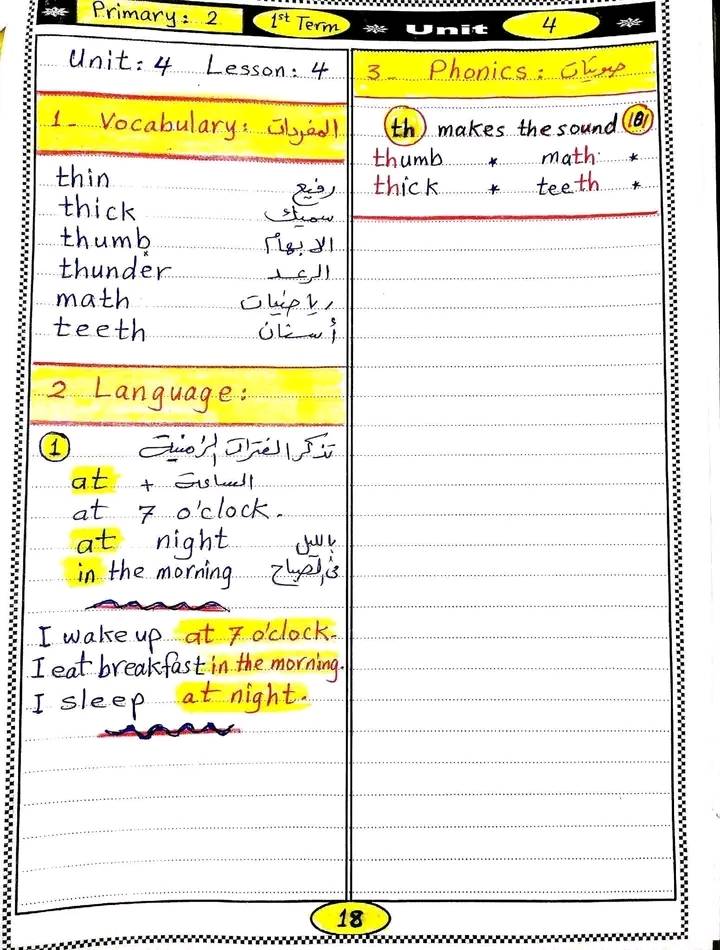 Primary: 2 1st Term Unit 4
Unit: 4 Lesson: 4
1- Vocabulary: المفردات
thin رفيع
thick سميك
thumb الابهام
thunder الرعد
math رياضيات
teeth أسنان
2 Language:
1 تذكر الفترات الزمنية
at + الساعة
at 7 o'clock.
at night بالليل
in the morning في الصباح
I wake up at 7 o'clock.
I eat breakfast in the morning.
I sleep at night.
3- Phonics: صوتيات
th makes the sound /θ/
thumb * math *
thick * teeth *
18